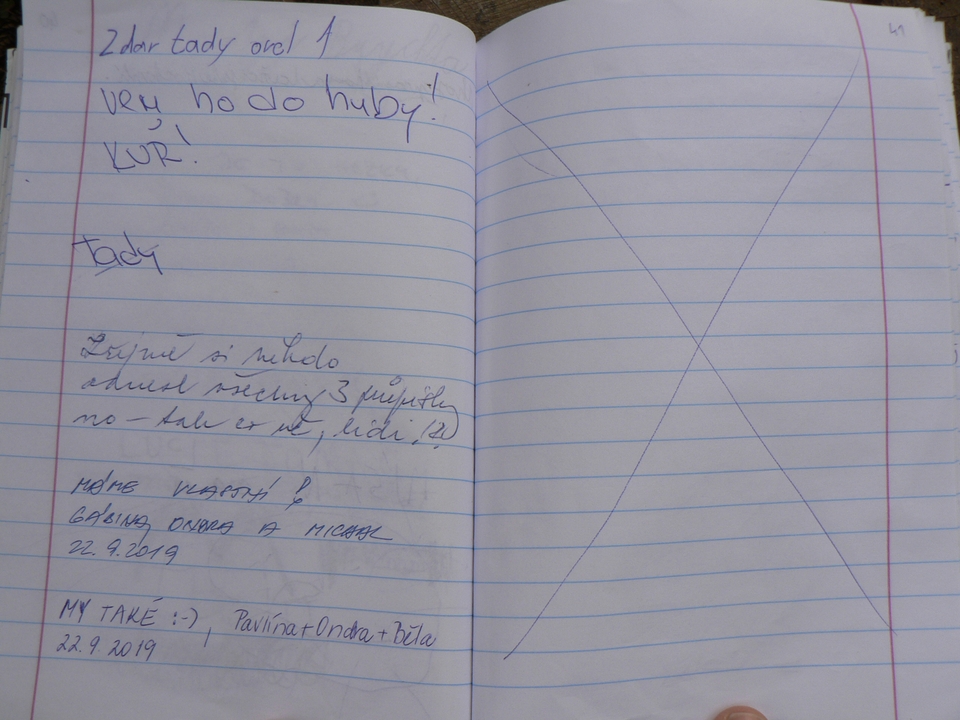 Zdar tady orel 1
vem ho do huby!
KUR!
tady
Zřejmě si někdo
odnesl všechny 3 propisky
no - tak co už, lidi
MÁME VLASTNÍ
GÁBINA, ONDRA A MICHAL
22.9.2019
MY TAKÉ :-), Pavlína+Ondra+Běla
22.9.2019
41